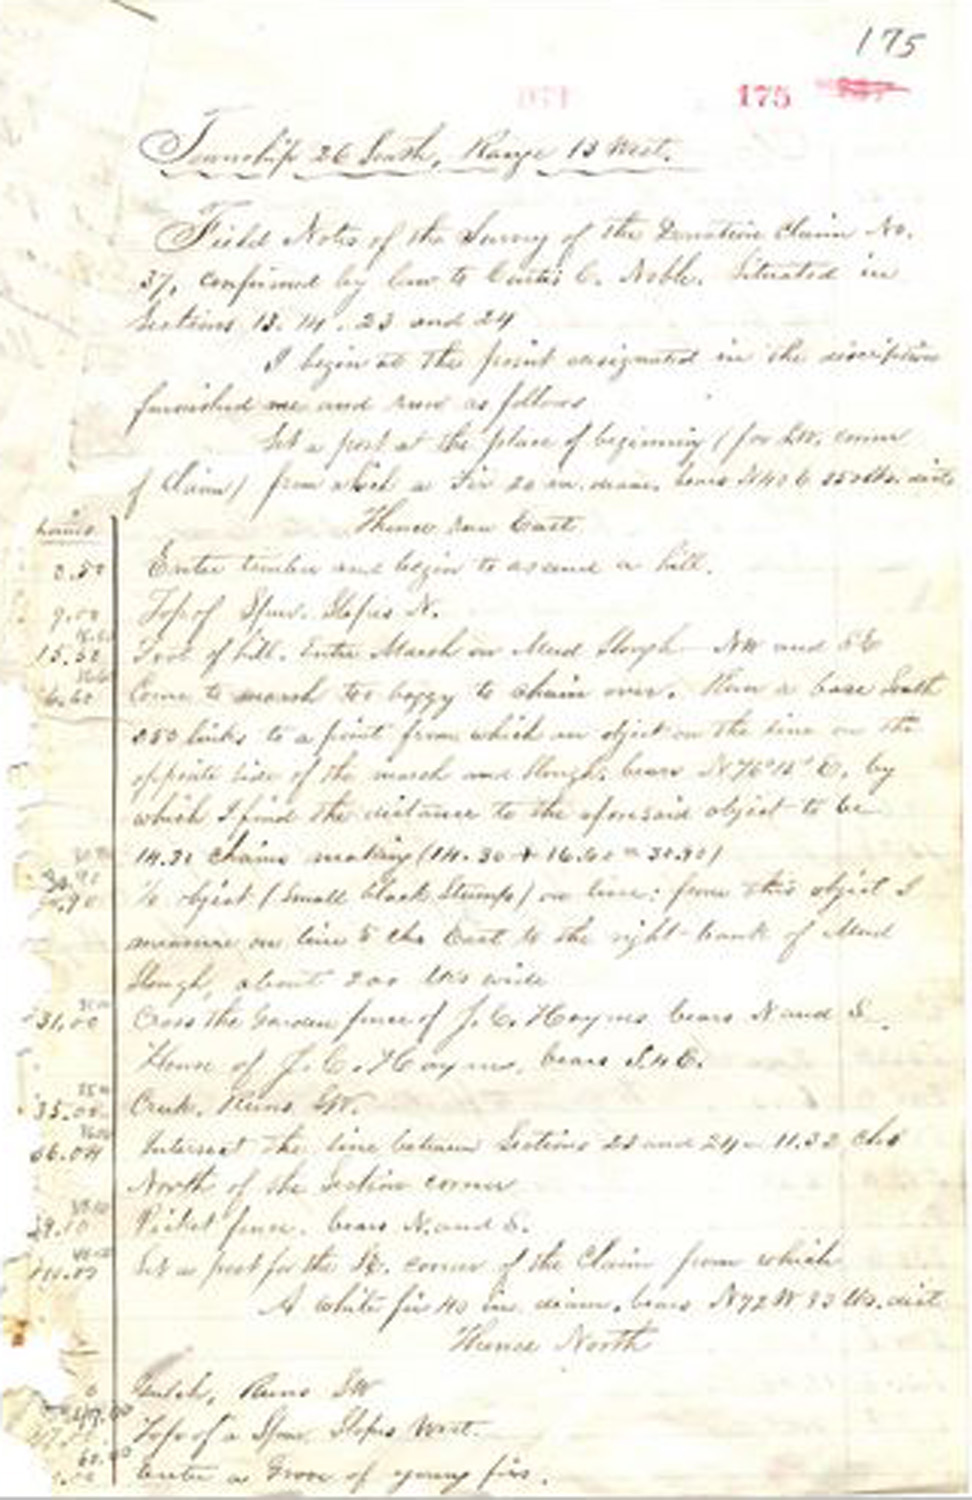 175
175
Township 26 South, Range 13 West.
Field Notes of the Survey of the Donation Claim No.
37, confirmed by law to Curtis C. Noble. Situated in
Sections 13. 14. 23 and 24
I begin at the point designated in the description
furnished me and run as follows
Set a post at the place of beginning (for SW. corner
of Claim) from which a Fir 20 in. diam. bears N40 E 250 lks. dist.
Thence run East
Enter timber and begin to ascend a hill.
9.00 Top of Spur. Slopes N.
15.50 Foot of hill. Enter Marsh on Mud Slough NW and SE
Come to marsh too boggy to chain over. Run a base South
350 links to a point from which an object on the line on the
opposite side of the marsh and slough, bears N 76° E, by
which I find the distance to the aforesaid object to be
14.30 chains making (14.30 + 16.60 = 30.90)
30.90 To object (small black Stump) on line: from this object I
measure on line 5 chs East to the right bank of Mud
Slough, about 200 lks wide
31.00 Cross the Garden fence of J. C. Haynes bears N and S.
House of J. C. Haynes, bears
35.00 Creek, Runs SW.
36.04 Intersect the line between Sections 23 and 24 11.32 chs
North of the Section corner
39.10 Picket fence. bears N. and S.
Set a post for the SE. corner of the Claim from which
A white fir 40 in. diam. bears N72W 93 lks. dist
Thence North
Gulch, Runs SW
Top of a Spur. Slopes West.
60.00 Enter a Grove of young firs.